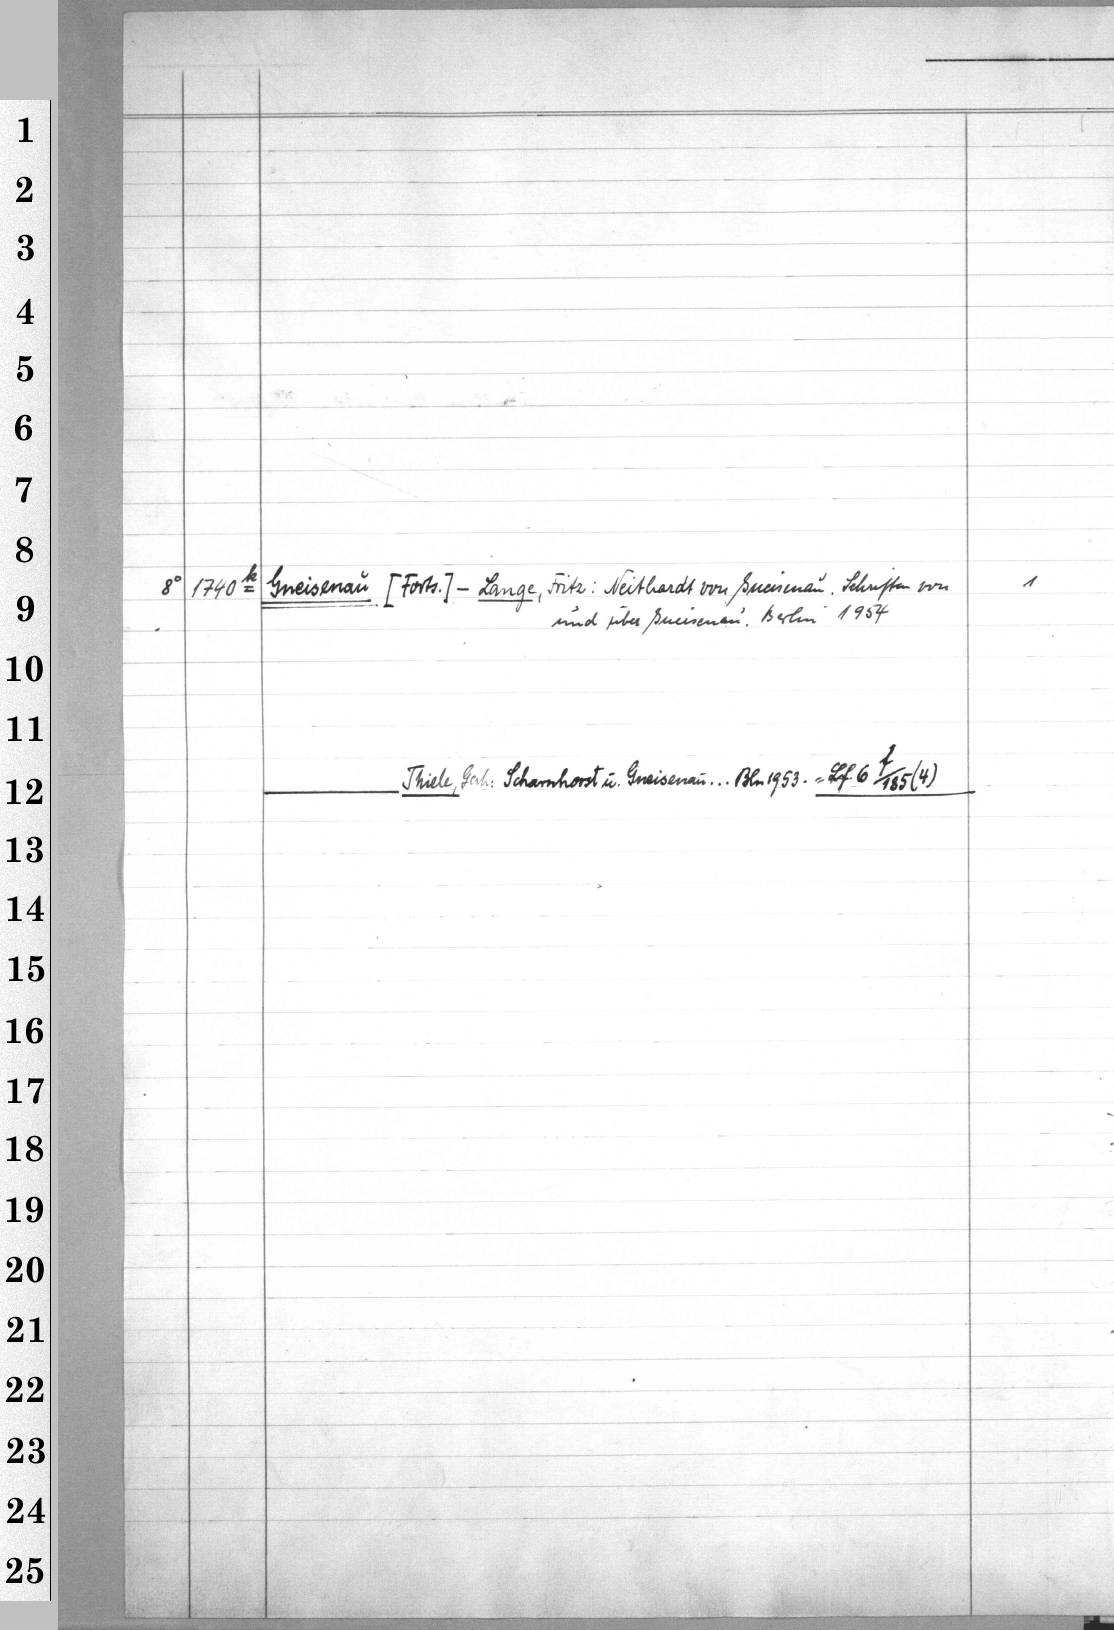 1
2
3
4
5
6
7
8
8° 1740 k Gneisenaŭ [Forts.] – Lange, Fritz: Neithardt von Gneisenaŭ. Schriften von 1
9
ŭnd über Gneisenaŭ. Berlin 1954
10
11
12
Thiele, Gerh: Scharnhorst ŭ. Gneisenaŭ... Bln 1953. = Lf 6 f/185(4)
13
14
15
16
17
18
19
20
21
22
23
24
25